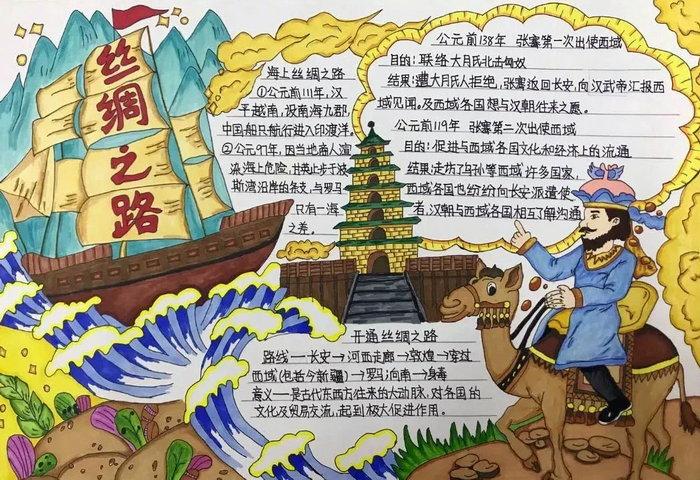 丝绸之路
海上丝绸之路
①公元前111年，汉
平越南，设南海九郡，
中国船只航行进入印度洋。
②公元97年，因当地商人渲
染海上危险，甘英止步于波
斯湾沿岸的条支，与罗马
只有一海
之差。
公元前138年 张骞第一次出使西域
目的：联络大月氏北击匈奴
结果：遭大月氏人拒绝，张骞返回长安，向汉武帝汇报西
域见闻，及西域各国想与汉朝往来之愿。
公元前119年 张骞第二次出使西域
目的：促进与西域各国文化和经济上的流通
结果：走访了乌孙等西域许多国家，
西域各国也纷纷向长安派遣使
者，汉朝与西域各国相互了解沟通
开通丝绸之路
路线一长安→河西走廊→敦煌→穿过
西域（包括今新疆）→罗马，向南→身毒
意义——是古代东西方往来的大动脉，对各国的
文化及贸易交流，起到极大促进作用。